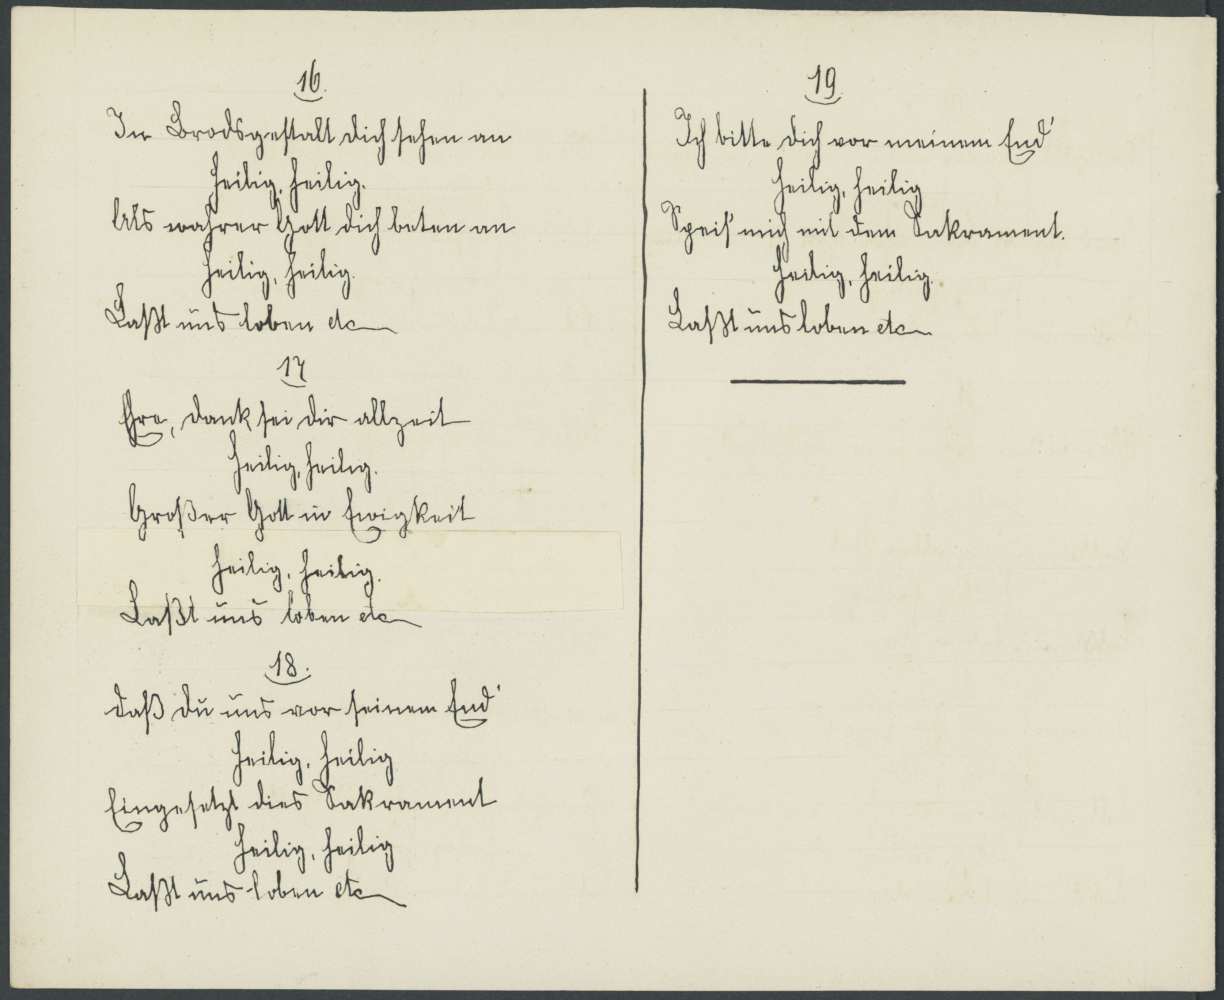 16.
In Brodsgestalt dich sehen an
heilig, heilig.
Als wahrer Gott dich beten an
heilig, heilig.
Laßt uns loben etc
17
Ehre, dank sei dir allzeit
heilig, heilig.
Großer Gott in Ewigkeit
heilig, heilig.
Laßt uns loben etc
18.
daß du uns vor seinem End'
heilig, heilig
Eingesetzt dies Sakrament
heilig, heilig
Laßt uns loben etc
19.
Ich bitte dich vor meinem End'
heilig, heilig
Speis' mich mit dem Sakrament.
heilig, heilig.
Laßt uns loben etc